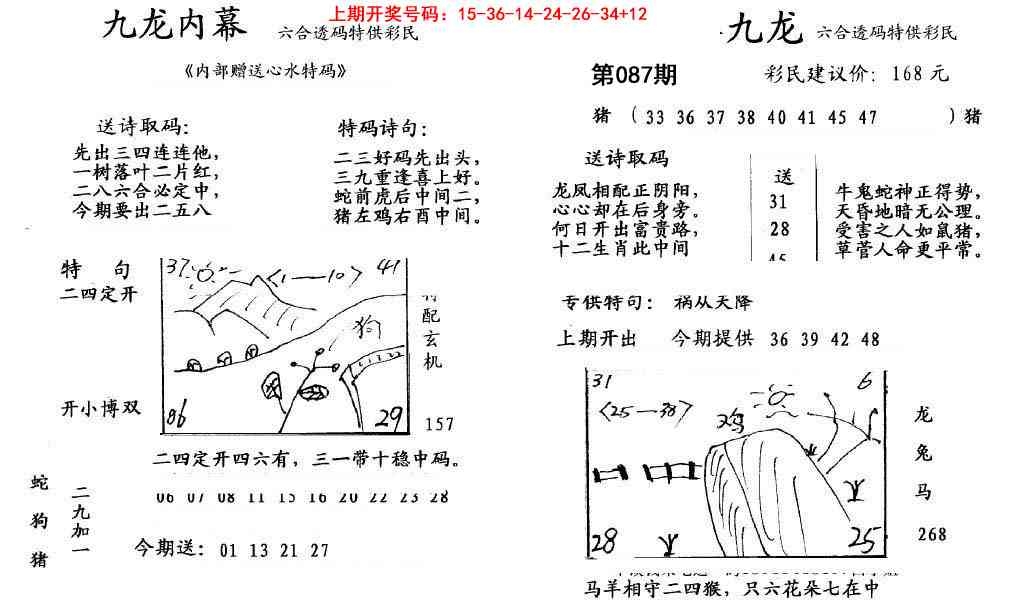 上期开奖号码：15-36-14-24-26-34+12
九龙内幕 六合透码特供彩民
《内部赠送心水特码》
送诗取码：
先出三四连连他，
一树落叶二片红，
二八六合必定中，
今期要出二五八
特码诗句：
二三好码先出头，
三九重逢喜上好。
蛇前虎后中间二，
猪左鸡右酉中间。
特 句
二四定开
开小博双
37
〈1——10〉
41
狗
06
29
配
玄
机
157
二四定开四六有，三一带十稳中码。
06 07 08 11 15 16 20 22 23 28
蛇
狗
猪
二
九
加
一
今期送：01 13 21 27
·九龙 六合透码特供彩民
第087期 彩民建议价：168元
猪（33 36 37 38 40 41 45 47 ）猪
送诗取码
龙凤相配正阴阳，
心心却在后身旁。
何日开出富贵路，
十二生肖此中间
送
31
28
45
牛鬼蛇神正得势，
天昏地暗无公理。
受害之人如鼠猪，
草菅人命更平常。
专供特句：祸从天降
上期开出 今期提供 36 39 42 48
31
6
〈25—38〉
鸡
28
25
龙
兔
马
268
马羊相守二四猴，只六花朵七在中